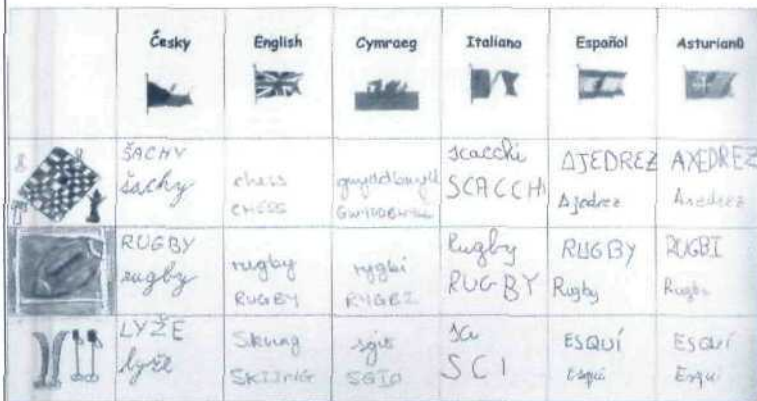 Česky English Cymraeg Italiano Español Asturianu
ŠACHY
šachy
chess
CHESS
gwyddbwyll
GWYDDBWYLL
scacchi
SCACCHI
AJEDREZ
Ajedrez
AXEDREZ
Axedrez
RUGBY
rugby
rugby
RUGBY
rygbi
RYGBI
Rugby
RUGBY
RUGBY
Rugby
RUGBI
Rugbi
LYŽE
lyže
Skiing
SKIING
sgio
SGIO
sci
SCI
ESQUÍ
Esquí
ESQUÍ
Esquí